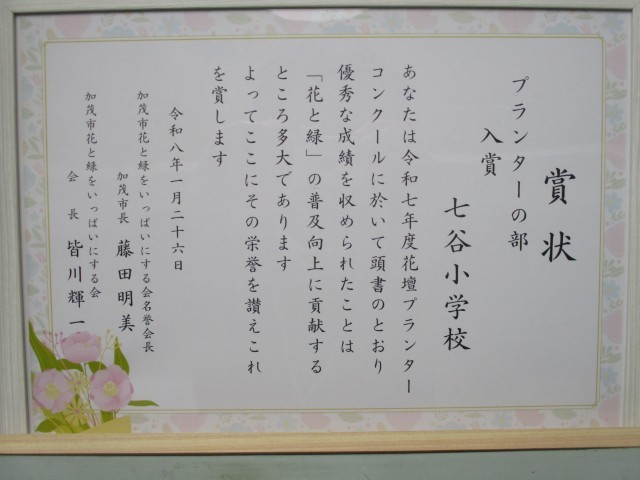 賞状
プランターの部
入賞
七谷小学校
あなたは令和七年度花壇プランター
コンクールに於いて頭書のとおり
優秀な成績を収められたことは
「花と緑」の普及向上に貢献する
ところ多大であります
よってここにその栄誉を讃えこれ
を賞します
令和八年一月二十六日
加茂市花と緑をいっぱいにする会名誉会長
加茂市長 藤田明美
加茂市花と緑をいっぱいにする会
会長 皆川輝一